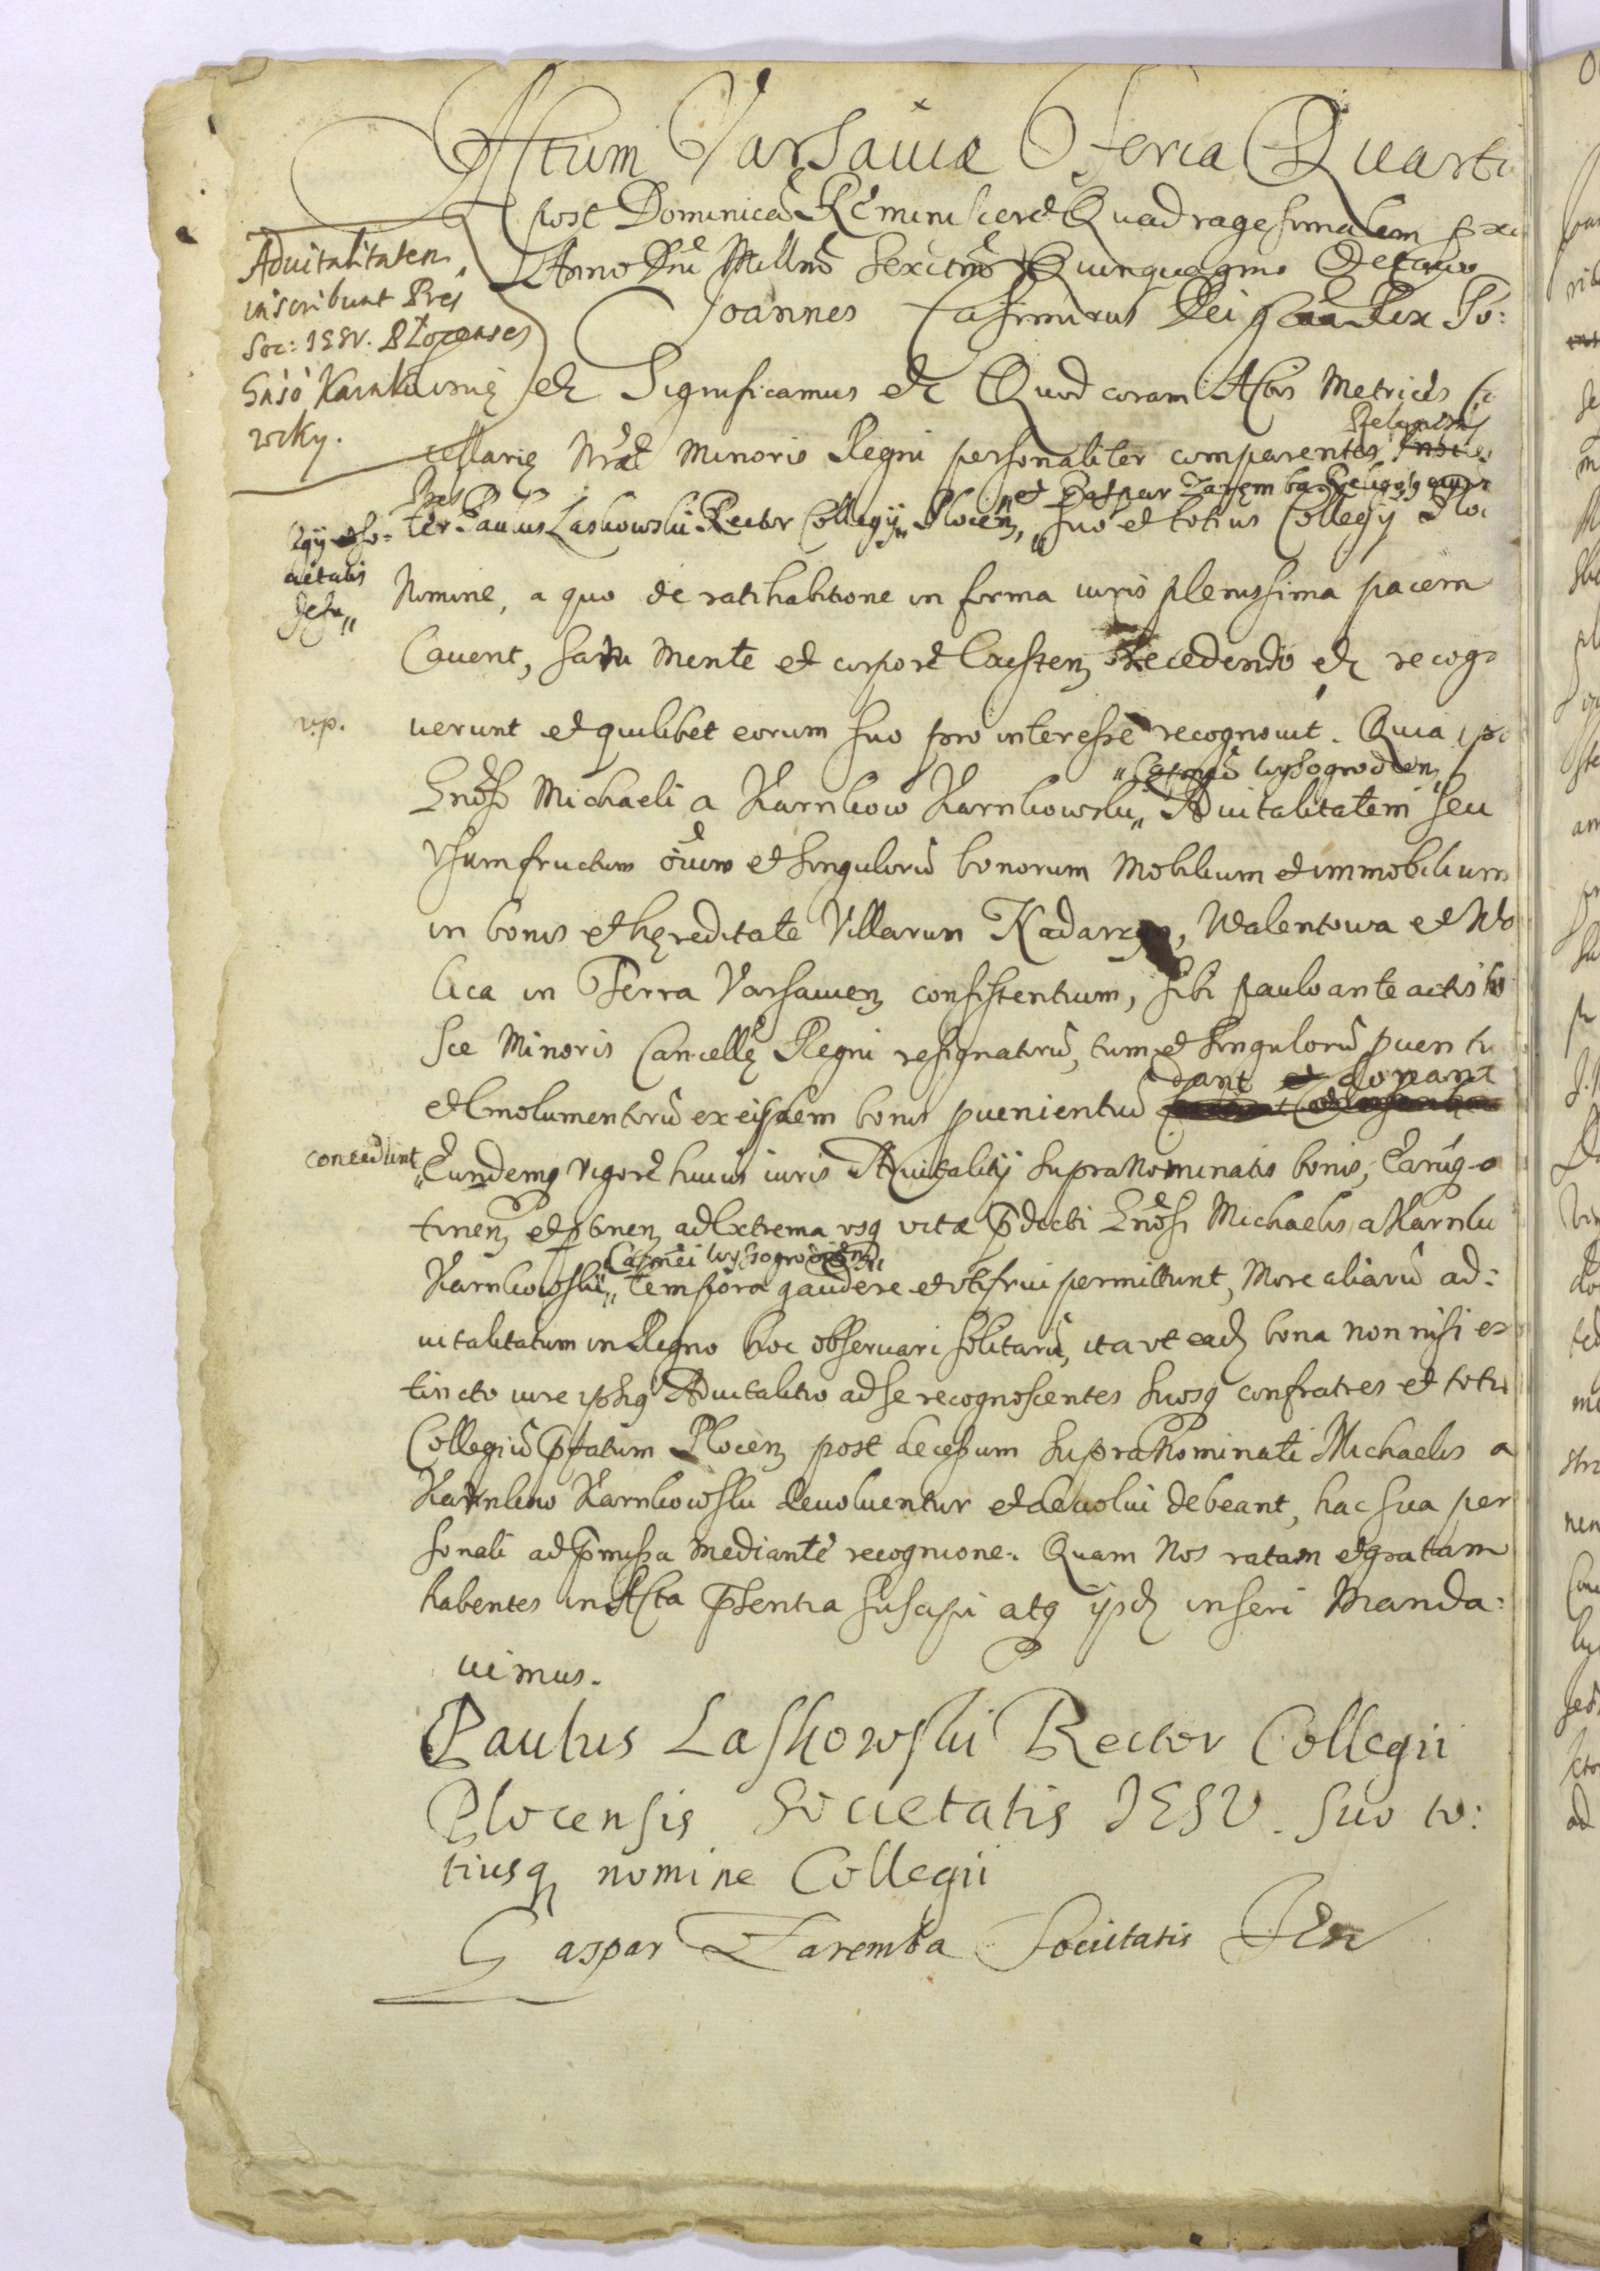 Actum Varsaviæ Feria Quarta
post Dominicā Reminiscere Quadragesimalem
Anno Dñi Millmō Sexctmō Quinquagmo Octavo
Aduitalitatem
inscribunt Pres
Soc: IESV. Plocenses
Gnso Karnkow
wsky.
Joannes Casimirus Dei Rex Po:
etc Significamus etc Quod coram Actis Metrices
cellarię Nræ Minoris Regni personaliter comparentes
Religiosi
Pres
et Gaspar Zaremba
ter Paulus Laskowski Rector Collegij „ Plocen, „ suo et totius Collegij Ploc
cietatis
Jesu „
Nomine, a quo de ratihabitione in forma iuris plenissima pacem
Cavent, sani Mente et corpore existen Recedendo etc recog
v.p.
uerunt et quilibet eorum suo pro interesse recognouit. Quia
„ Castneō Wysogroden
Gnoso Michaeli a Karnkow Karnkowski „ Aduitalitatem seu
Vsumfructum oium et singulorū bonorum Mobilium et immobilium
in bonis et hęreditate Villarum Kadar, Walentowa et Wo
lica in Terra Varsauien consistentium, sibi paulo ante actis
sce Minoris Cancellę Regni resignatorū, tum et singulorū puentu
dant et donant
et Emolumentorū ex eisdem bonis puenientiū
concedunt
„ Eundemq vigore huius iuris Aduitalitij supra Nominatis bonis, earūq
tinen et ptinen ad Extrema usq vitæ pdicti Gnosi Michaelis a Karnkow
Castnei Wysogroden
Karnkowski „ tempora gaudere et vtifrui permittunt, More aliarū ad:
uitalitatum in Regno hoc obseruari solitarū, ita vt eadz bona non nisi ex
tincto iure ipsiq Aduitalitio ad se recognoscentes suosq confratres et totū
Collegiū pfatum Plocen post decessum supra Nominati Michaelis a
Karnkow Karnkowski deuoluentur et deuolui debeant, hac sua per
sonali ad pmissa mediante recognione. Quam Nos ratam et gratam
habentes in Acta psentia suscipi atq ijsdz inseri Manda:
uimus.
Paulus Laskowski Rector Collegii
Plocensis Societatis IESV. suo to:
tiusq nomine Collegii
Gaspar Zaremba Societatis Jesu